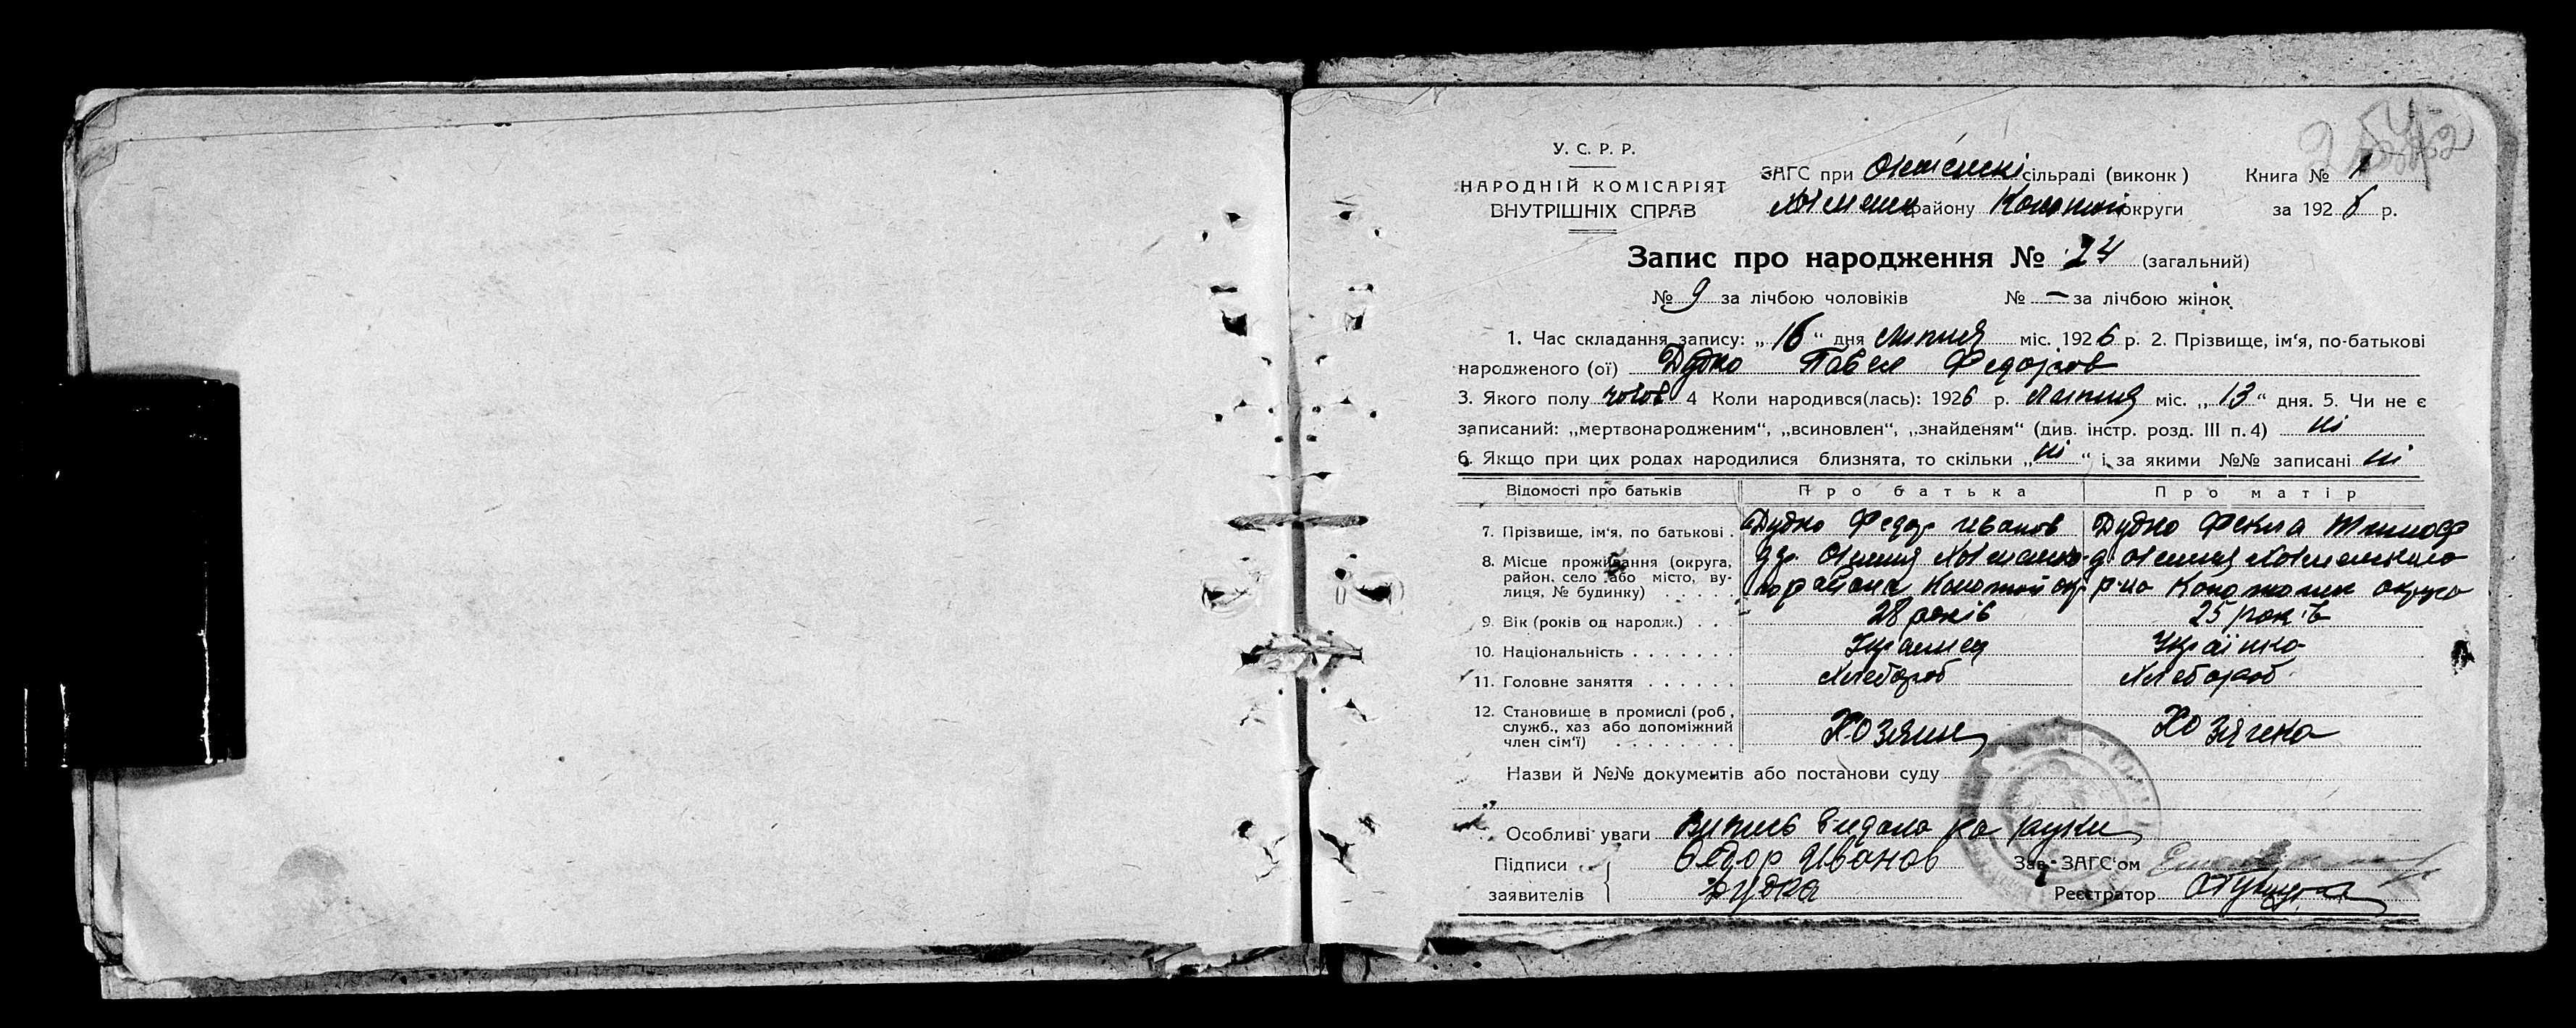 У. С. Р. Р.
НАРОДНІЙ КОМІСАРІЯТ
ВНУТРІШНІХ СПРАВ
ЗАГС при сільраді (виконк)
району округи
Книга № 1
за 1926 р.
Запис про народження № 24 (загальний)
№ 9 за лічбою чоловіків № — за лічбою жінок
1. Час складання запису: „16“ дня липня міс. 1926 р. 2. Прізвище, ім‘я, по-батькові
народженого (ої) Дудко Павел Федоров
3. Якого полу чолов 4 Коли народився(лась): 1926 р. липня міс. „13“ дня. 5. Чи не є
записаний: „мертвонародженим“, „всиновлен“, „знайденям“ (див. інстр. розд. III п. 4) ні
6. Якщо при цих родах народилися близнята, то скільки „ні“ і за якими №№ записані ні
Відомості про батьків Про батька Про матір
7. Прізвище, ім‘я, по батькові . Дудко Федор Иванов Дудко Фекла Тимоф
8. Місце проживання (округа,
район, село або місто, ву-
лиця, № будинку) . . . . .
9. Вік (років од народж.) . . . 28 років 25 років
10. Національність . . . . . . . Українка
11. Головне заняття . . . . . . Хлебороб Хлебороб
12. Становище в промислі (роб.,
служб., хаз або допоміжний
член сім‘ї) . . . . . . . . Хозяин Хозяйка
Назви й №№ документів або постанови суду
Особливі уваги Випись видана на руки
Підписи Федор Иванов Зав. ЗАГС‘ом
заявителів Дудка Реєстратор